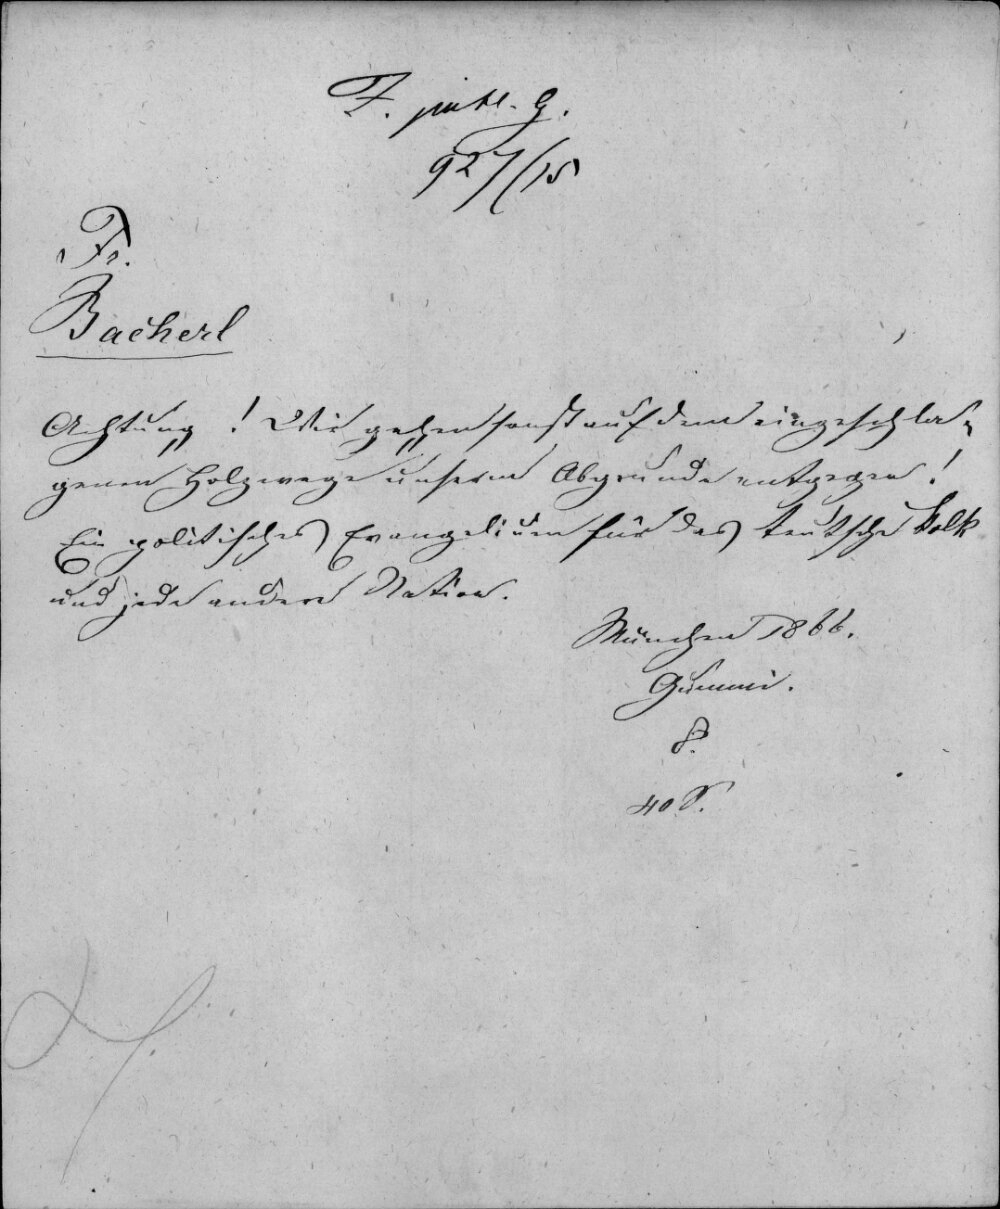 J. publ. G.
927/15
Fr.
Bacherl
Achtung! Wir gehen sonst auf dem eingeschla-
genen Holzwege unserm Abgrunde entgegen!
Ein politisches Evangelium für das teutsche Volk
und jede andere Nation.
München 1866.
Gummi.
8.
40 S.